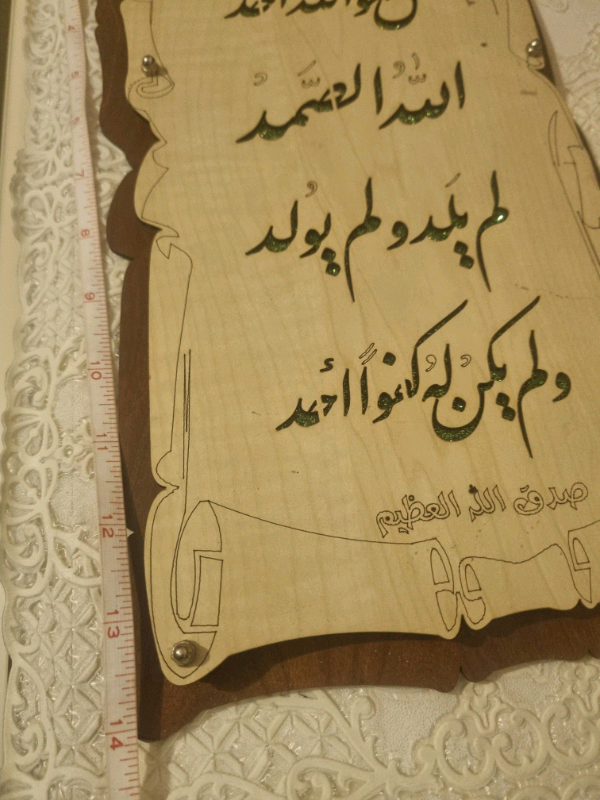 قل هو الله أحد
اللَّهُ الصَّمَدُ
لم يَلد ولم يُولد
ولم يكن لهُ كفواً أحد
صدق الله العظيم
7
8
9
10
11
12
13
14